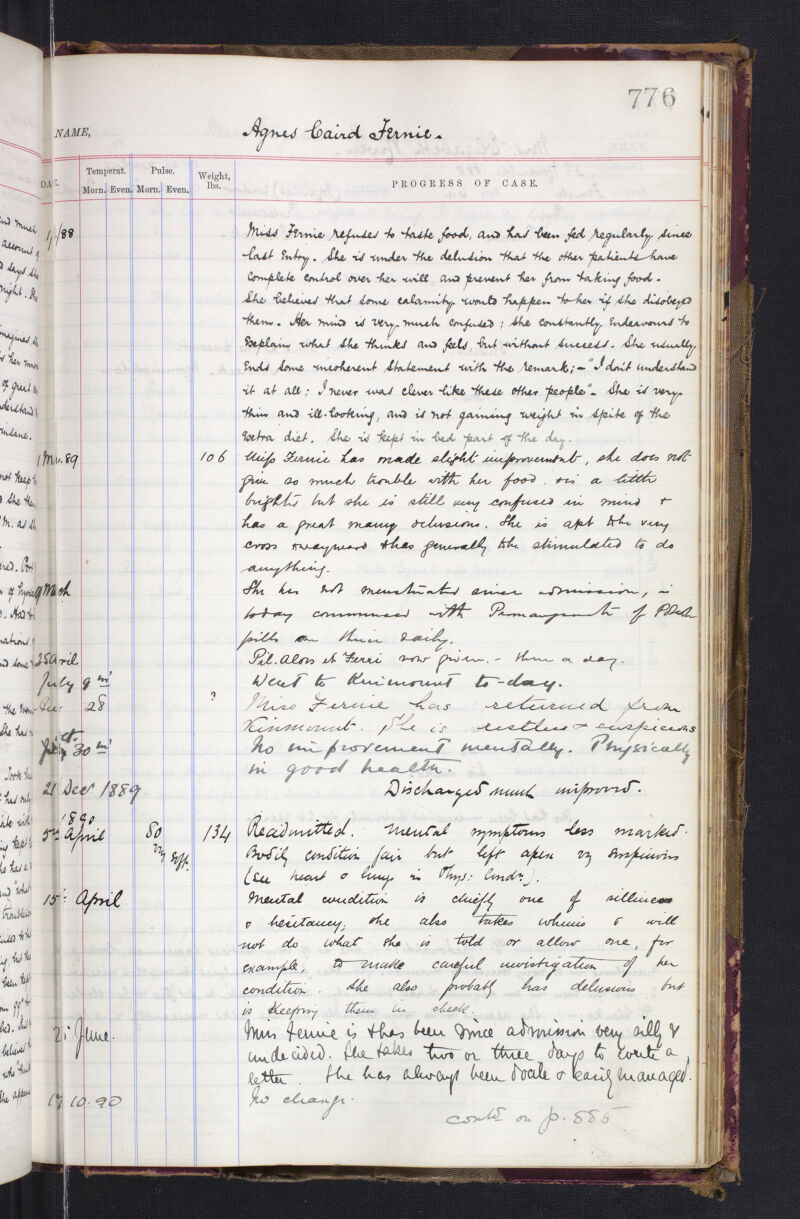 776
NAME, Agnes Caird Fernie.
Temperat. Pulse. Weight, lbs. PROGRESS OF CASE.
Morn. Even. Morn. Even.
/88 Miss Fernie refuses to taste food, and has been fed regularly since
last Entry. She is under the delusion that the other patients have
complete control over her will, and prevent her from taking food.
She believes that some calamity would happen to her if she disobeyed
them. Her mind is very much confused; she constantly Endeavours to
Explain what she thinks and feels, but without success. She usually
Ends some incoherent statement with the remark;- "I don't understand
it at all; I never was clever like these other people". She is very
thin and ill-looking, and is not gaining weight in spite of the
Extra diet. She is kept in bed part of the day.
89 106 Miss Fernie has made slight improvement, she does not
give so much trouble with her food. & is a little
brighter but she is still very confused in mind &
has a great many delusions. She is apt to be very
cross & wayward & has generally to be stimulated to do
anything.
She has not menstruated since admission, is
today commenced with Permanganate of Potash
pills one thrice daily.
25 April Pil. Aloes et Ferri now given. - three a day.
July 9th Went to Kinmount to-day.
Aug 28 ? Miss Fernie has returned from
Kinmount. She is restless & suspicious
30th No improvement mentally. Physically
in good health.
21 Decr 1889. Discharged much improved.
1890
5th April 80 vy soft. 134 Readmitted. Mental symptoms less marked.
Bodily condition fair but left apex vy suspicious
(See heart & lungs in Phys: Condn.).
15th April Mental condition is chiefly one of silliness
& hesitancy; she also takes whims & will
not do what she is told or allow one, for
example, to make careful investigation of her
condition. She also probably has delusions but
is keeping them in check.
25 June. Miss Fernie is & has been since admission very silly &
undecided. She takes two or three days to write a
letter. She has always been docile & easily managed.
17.10.90 No change.
contd on p. 885